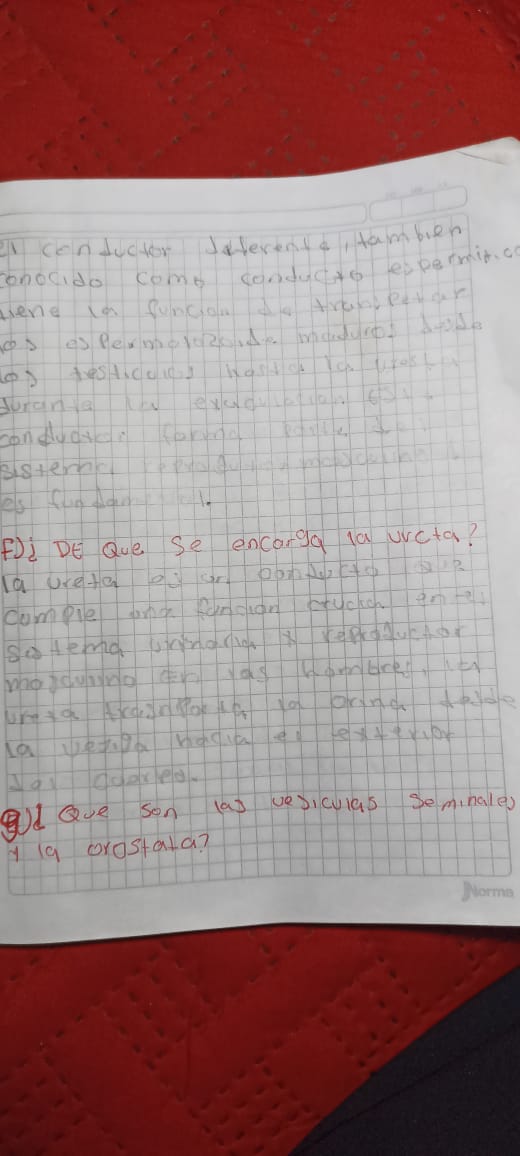 el conductor deferente, tambien
conocido como conducto espermatico
tiene la función de transportar
los espermatozoide maduros desde
los testiculos hasta la ureta
durante la
conducto forma parte del
sistema reproductor masculino
es fundamental.
F)¿ DE Que se encarga la urcta?
la ureta es un conducto que
cumple una función crucial en el
sistema urinaria y reproductor
masculino en las hombres, la
ureta la orina desde
la vejiga hacia el exterior
del
g)¿ Que son las vesiculas seminales
y la prostata?
Norma